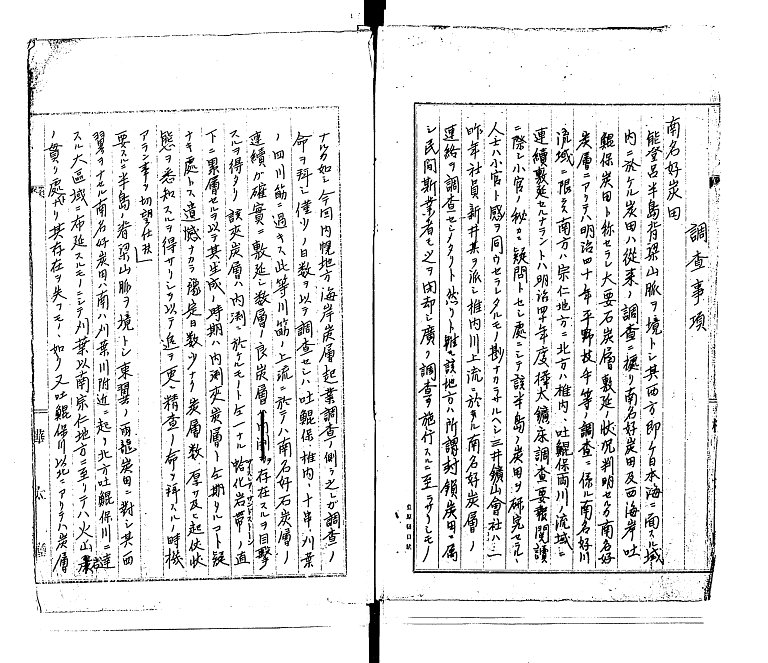 調査事項
南名好炭田
能登呂半島背梁山脈ヲ境トシ其西方即ケ日本海ニ面スル域
内ニ於ケル炭田ハ従来ノ調査ニ據リ南名好炭田及西海岸吐
鯤保炭田ト称セラレ大要石炭層敷延ノ状況判明セルタ南名好
炭層ニアリテハ明治四十年平野技手等ノ調査ニ係ル南名好川
流域ニ限ラレ南方ハ宗仁地方ニ北方ハ椎内、吐鯤保両川ノ流域ニ
連續敷延セルナラントハ明治四十年度樺太鑛床調査要報閲讀
ニ際シ小官ノ秘カニ疑問トセシ處ニシテ該半島ノ炭田ヲ研究セル
人士ハ小官ト感ヲ同ウセラレタルモノ尠ナカラサルヘシ三井鑛山會社ハ一
昨年社員新井某ヲ派シ椎内川上流ニ於ケル南名好炭層ノ
連絡ヲ調査セシメタリト然リト雖該地方ハ所謂封鎖炭田ニ属
シ民間斯業者モ之ヲ閑却シ廣ク調査ヲ施行スルニ至ラサリシモノ
ナルカ如シ今回内幌地方海岸炭層起業調査ノ側ラ之レカ調査ノ
命ヲ拜シ僅少ノ日数ヲ以テ調査セシハ吐鯤保、椎内、十串、刈葉
ノ四川筋ニ過キス此等川筋ノ上流ニ於テハ南名好石炭層ノ
連續カ確實ニ敷延シ数層ノ良炭層ヲ存在スルヲ目撃
スルヲ得タリ該夾炭層ハ内渕ニ於ケルモノト仝一ナル蛤化岩帶ノ直
下ニ累層セルヲ以テ其生成ノ時期ハ内渕夾炭層ト仝期タルコト疑
ナキ處トス遺憾ナカラ豫定日数少ナク炭層数、厚及ヒ起伏状
態ヲ悉知スルヲ得サリシヲ以テ追ヲ更ニ精査ノ命ヲ拜スルノ時機
アラン事ヲ切望仕共
要スルニ半島ノ脊梁山脈ヲ境トシ東翼ノ両龍炭田ニ對シ其西
翼ヲナセル南名好炭田ハ南ハ刈葉川附近ニ起リ北方吐鯤保川ニ達
スル大區域ニ布延スルモノニシテ刈葉以南宗仁地方ニ至リテハ火山岩
ノ貫ク處トナリ共存在ヲ失フモノヽ如ク又吐鯤保川以北ニアリテハ炭層
樺太廳